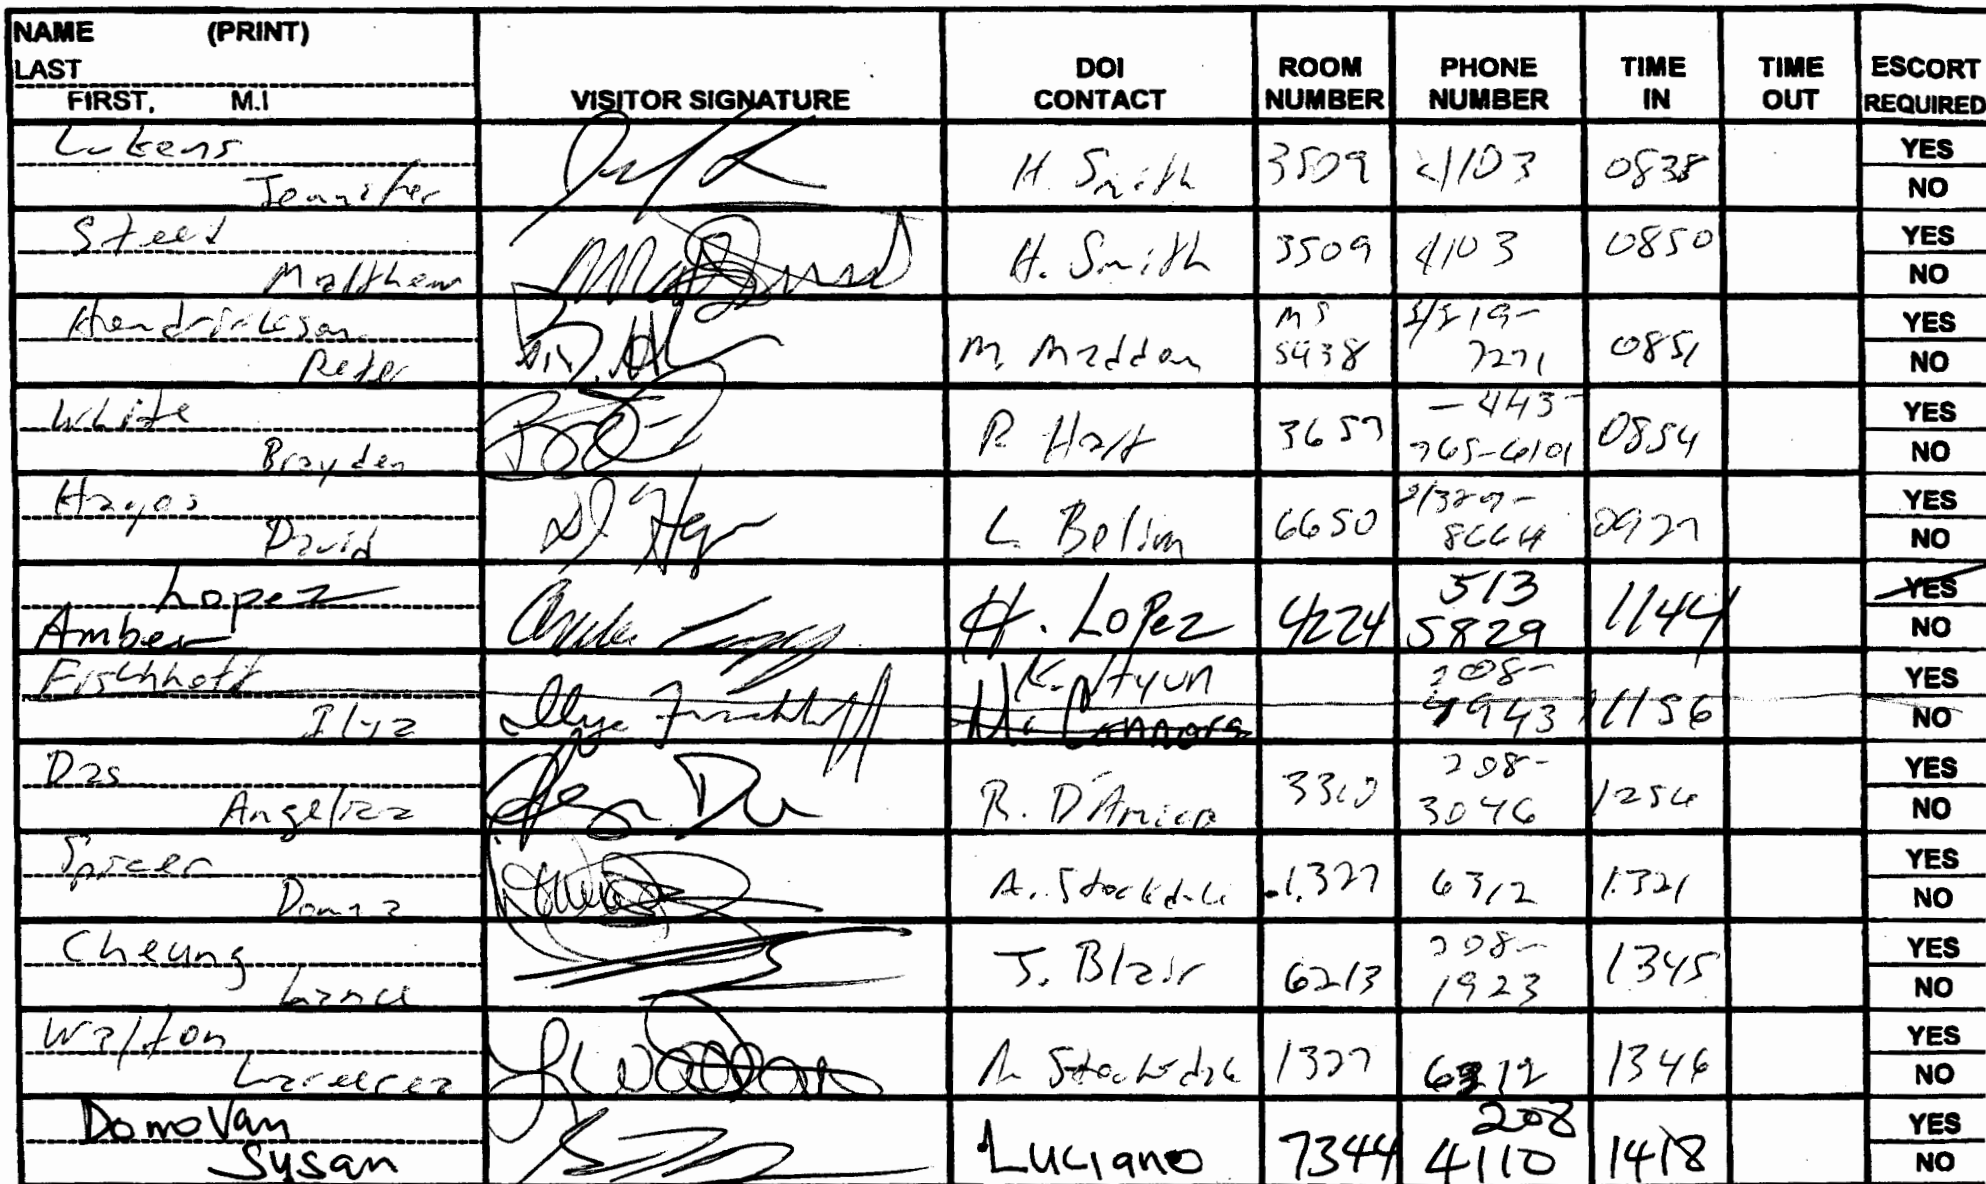 NAME (PRINT)
LAST
FIRST, M.I
VISITOR SIGNATURE
DOI CONTACT
ROOM NUMBER
PHONE NUMBER
TIME IN
TIME OUT
ESCORT REQUIRED
Lukens
Jennifer
H. Smith 3509 4103 0838
YES
NO
Steed
Matthew
H. Smith 3509 4103 0850
YES
NO
Hendrickson
Peter
M. Madden
MS
5438
7271
0851
YES
NO
White
Brayden
P. Hart 3657
- 443-
765-6101
0854
YES
NO
Hayes
David
L. Belim 6650
0927
YES
NO
Lopez
Amber
H. Lopez 4224
513
5829
1144
YES
NO
Fischhoff
Ilya
Ilya Fischhoff
K. Hyun
208-
4943
1156
YES
NO
Das
Angelica
R. D'Amico 3310
208-
3046
YES
NO
Spicer
Donna
A. Stockdale 1327 6312 1321
YES
NO
Cheung
Lance
J. Blair 6213
208-
1923
1345
YES
NO
Walton
A. Stockdale 1327 6312 1346
YES
NO
Donovan
Susan
Luciano 7344
208
4110
1418
YES
NO